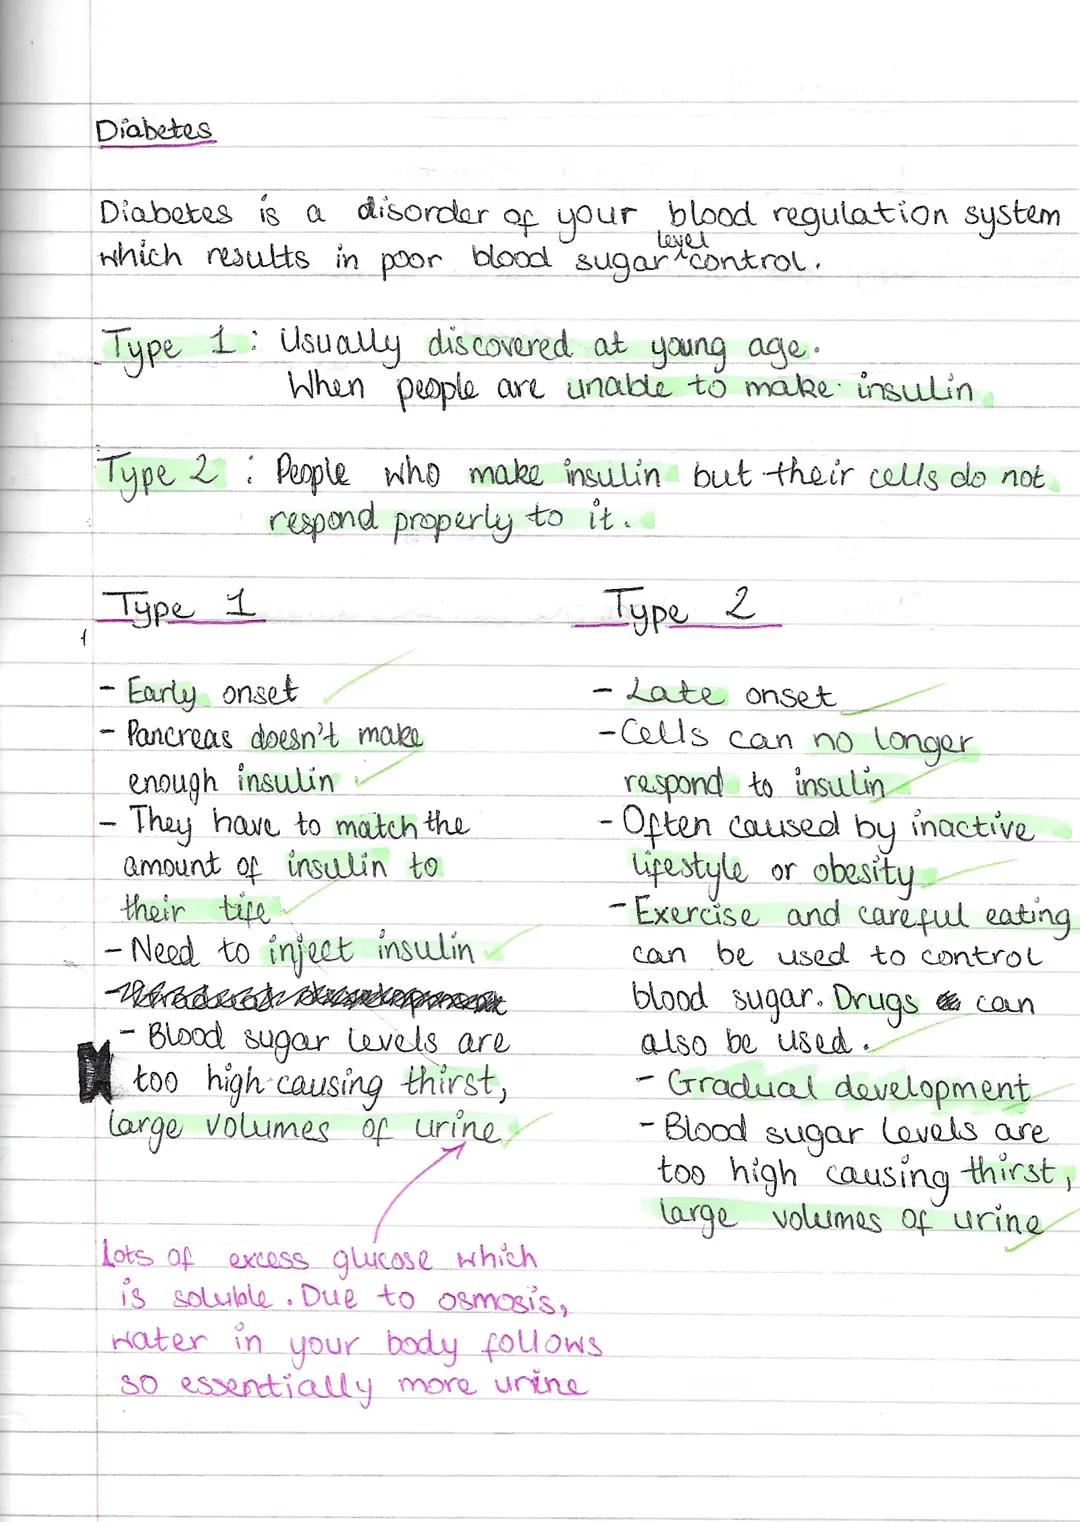 Diabetes
Diabetes is a disorder of your blood regulation system
level
which results in poor blood sugar ^control.
Type 1: Usually discovered at young age.
When people are unable to make insulin
Type 2: People who make insulin but their cells do not
respond properly to it.
Type 1
- Early onset
- Pancreas doesn't make
enough insulin
- They have to match the
amount of insulin to
their life
- Need to inject insulin
- Blood sugar levels are
too high causing thirst,
large volumes of urine
Lots of excess glucose which
is soluble. Due to osmosis,
water in your body follows
so essentially more urine
Type 2
- Late onset
- Cells can no longer
respond to insulin
- Often caused by inactive
lifestyle or obesity
- Exercise and careful eating
can be used to control
blood sugar. Drugs can
also be used.
- Gradual development
- Blood sugar levels are
too high causing thirst,
large volumes of urine